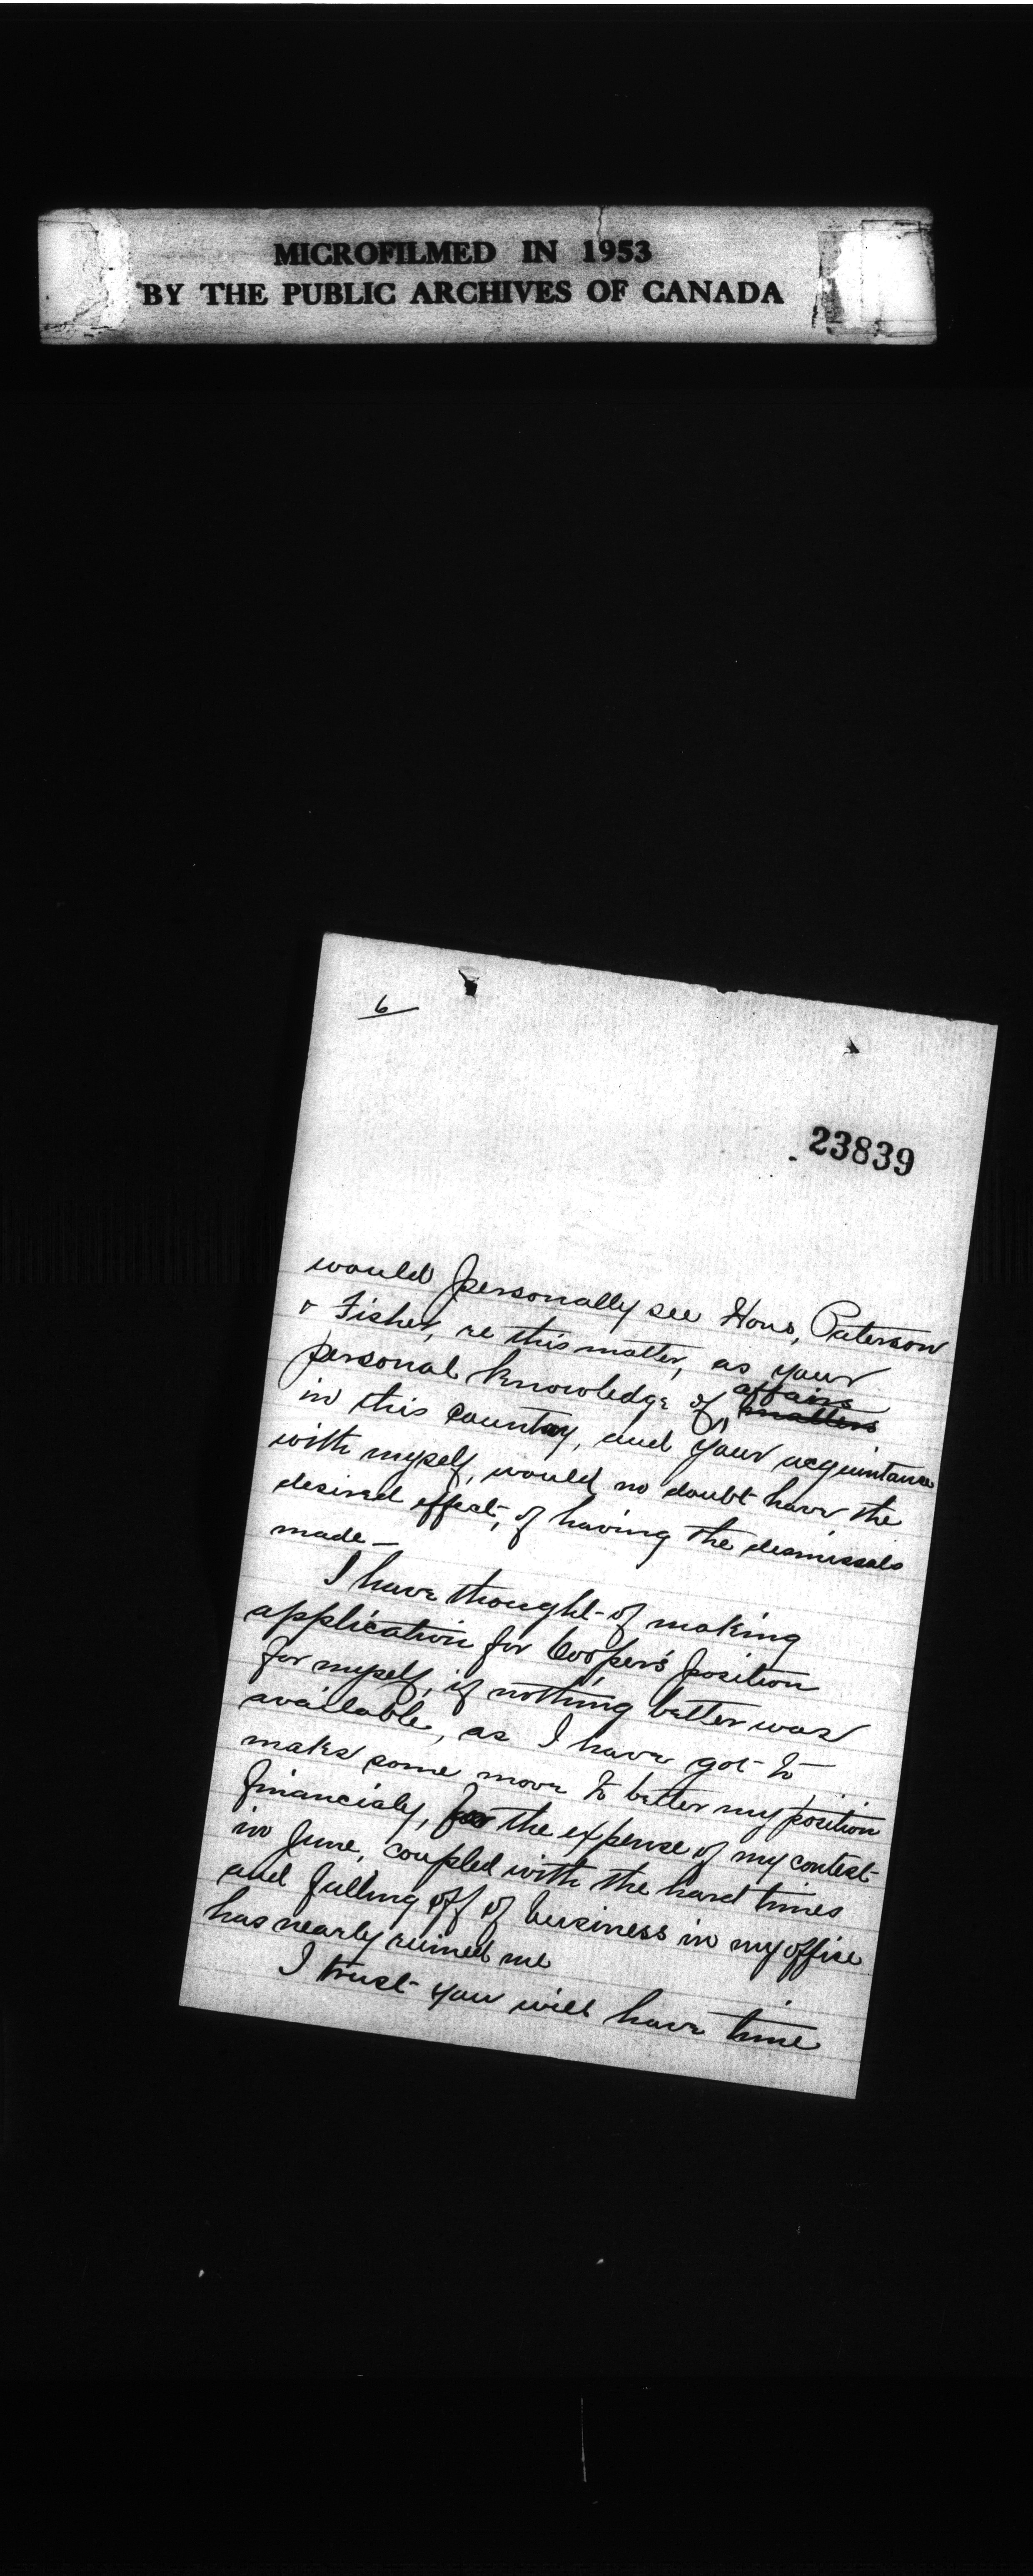 MICROFILMED IN 1953
BY THE PUBLIC ARCHIVES OF CANADA
6
23839
would personally see Hons, Paterson
& Fisher, re this matter, as your
personal knowledge of affairs matters
in this country, and your acquintance
with myself, would no doubt have the
desired effect, of having the dismissals
made –
I have thought of making
application for Cooper's position
for myself, if nothing better was
available, as I have got to
make some move to better my position
financialy, for the expense of my contest
in June, coupled with the hard times
and falling off of business in my office
has nearly ruined me
I trust you will have time